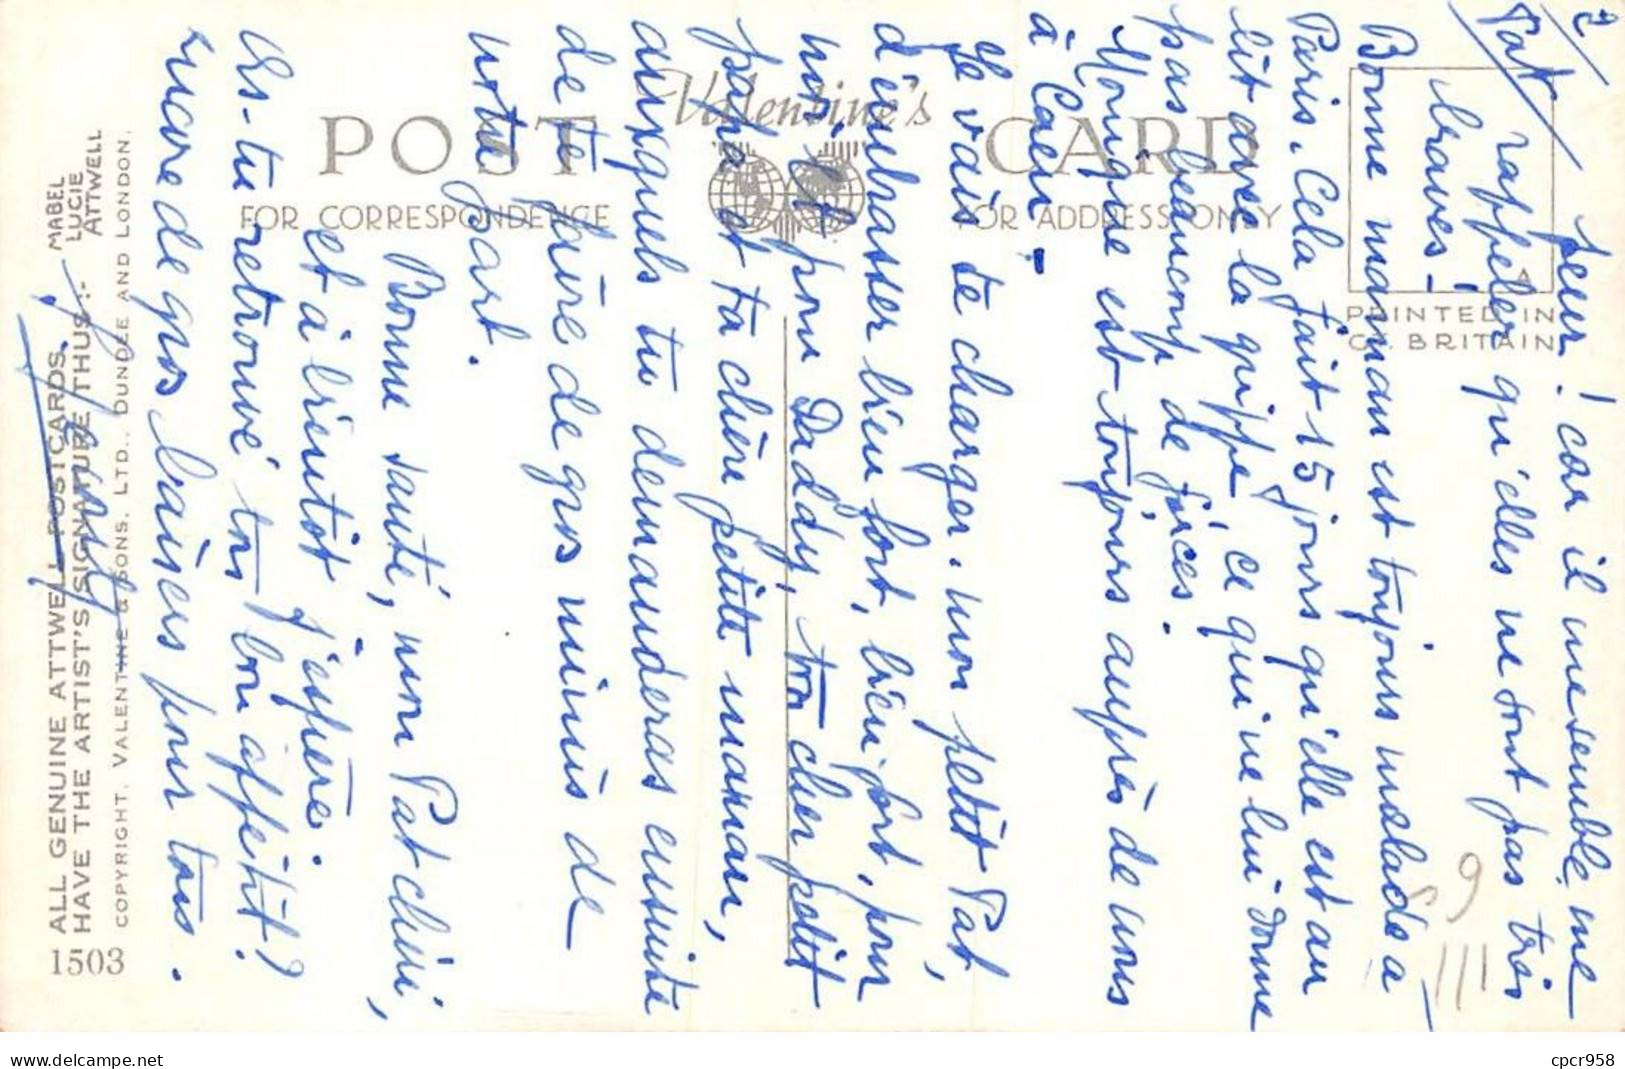 2
Pat
peur ! car il me semble me
rappeler qu'elles ne sont pas très
braves -
Bonne maman est toujours malade à
Paris. Cela fait 15 jours qu'elle est au
lit avec la grippe, ce qui ne lui donne
pas beaucoup de forces.
est toujours auprès de nous
à Caen -
Je vais te charger, mon petit Pat,
d'embrasser bien fort, bien fort, pour
moi, et pour Daddy, ton cher petit
papa et ta chère petite maman,
auxquels tu demanderas ensuite
de te faire de gros mimis de
notre part.
Bonne santé, mon Pat chéri,
et à bientôt j'espère.
As-tu retrouvé ton bon appétit ?
encore de gros baisers pour tous.
POST CARD
Valentine's
FOR CORRESPONDENCE
FOR ADDRESS ONLY
PRINTED IN
GT. BRITAIN
A
9
III
1503
ALL GENUINE ATTWELL POSTCARDS
HAVE THE ARTIST'S SIGNATURE THUS :-
MABEL
LUCIE
ATTWELL
COPYRIGHT. VALENTINE & SONS, LTD., DUNDEE AND LONDON.
delcampe.net
cpcr958